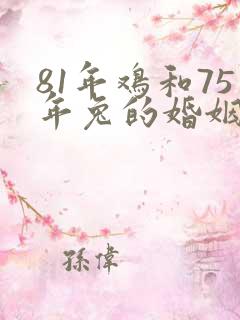 81年鸡和75
年兔的婚姻
孫偉